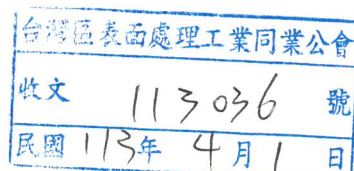 台灣區表面處理工業同業公會
收文 113036 號
民國 113年 4月 1日